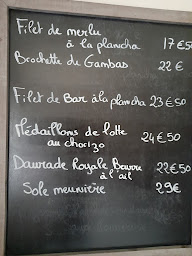 Filet de merlu
à la plancha 17€50
Brochette de Gambas 22 €
Filet de Bar à la plancha 23€50
Médaillons de lotte
au chorizo 24€50
Daurade Royale Beurre
à l'ail 22€50
Sole meunière 29€